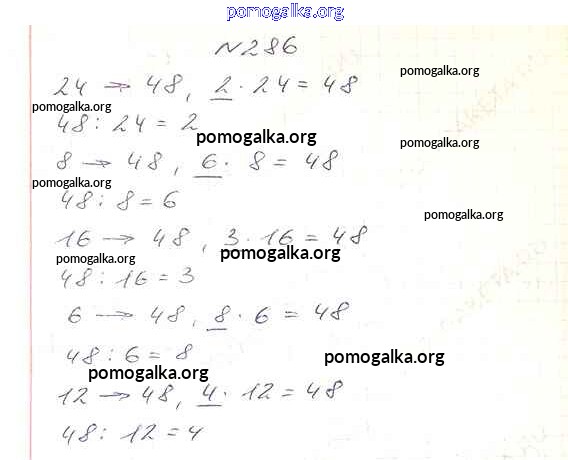 pomogalka.org
N286
pomogalka.org
24 → 48, 2 · 24 = 48
pomogalka.org
48 : 24 = 2
pomogalka.org
pomogalka.org
8 → 48, 6 · 8 = 48
pomogalka.org
48 : 8 = 6
pomogalka.org
16 → 48, 3 · 16 = 48
pomogalka.org
pomogalka.org
48 : 16 = 3
6 → 48, 8 · 6 = 48
48 : 6 = 8
pomogalka.org
pomogalka.org
12 → 48, 4 · 12 = 48
48 : 12 = 4